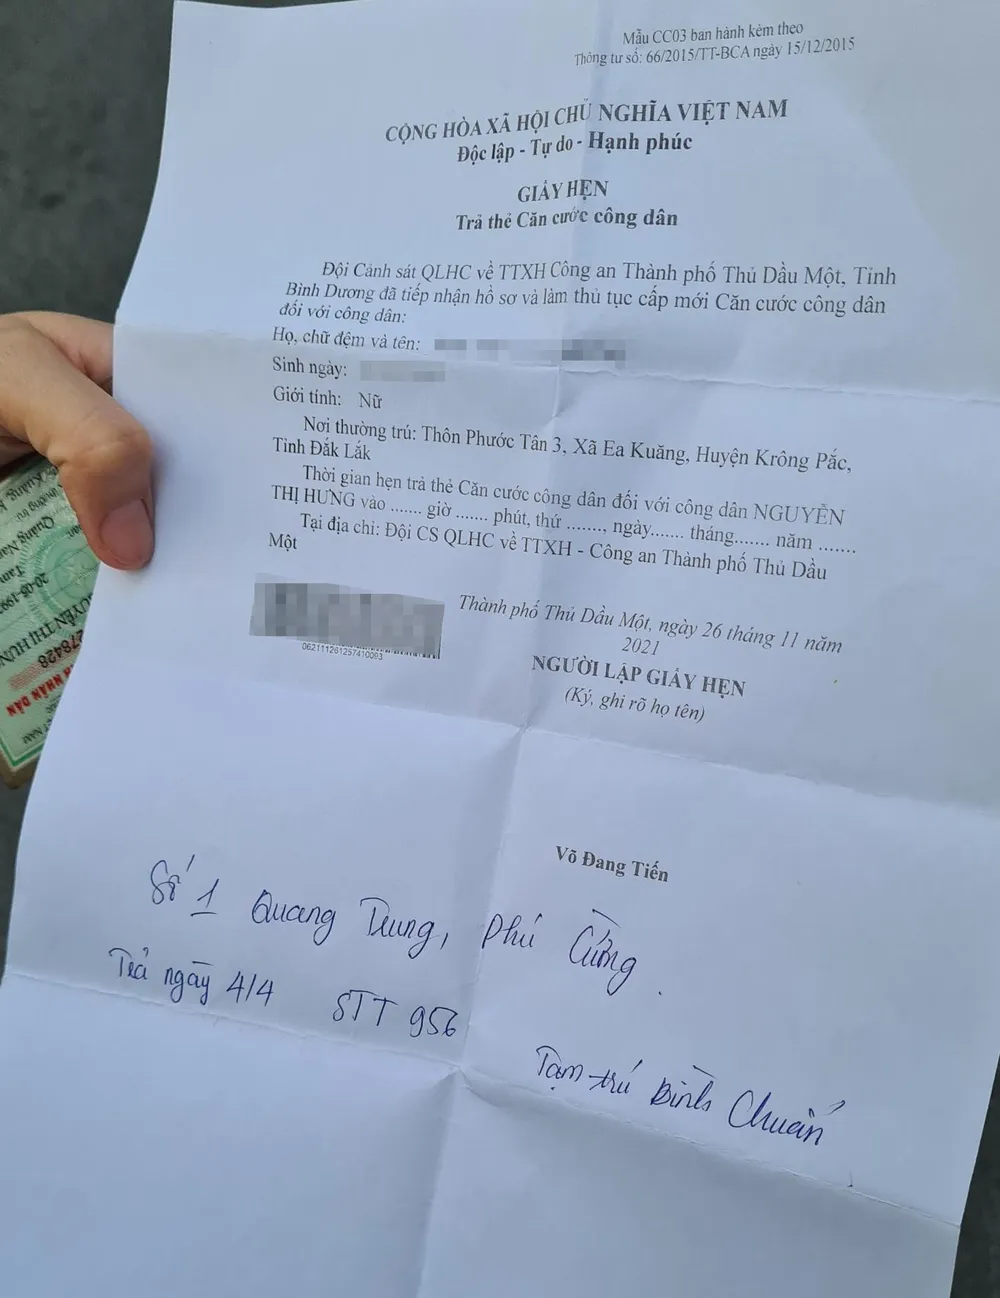 Mẫu CC03 ban hành kèm theo
Thông tư số: 66/2015/TT-BCA ngày 15/12/2015
CỘNG HÒA XÃ HỘI CHỦ NGHĨA VIỆT NAM
Độc lập - Tự do - Hạnh phúc
GIẤY HẸN
Trả thẻ Căn cước công dân
Đội Cảnh sát QLHC về TTXH Công an Thành phố Thủ Dầu Một, Tỉnh
Bình Dương đã tiếp nhận hồ sơ và làm thủ tục cấp mới Căn cước công dân
đối với công dân:
Họ, chữ đệm và tên:
Sinh ngày:
Giới tính: Nữ
Nơi thường trú: Thôn Phước Tân 3, Xã Ea Kuăng, Huyện Krông Pắc,
Tỉnh Đắk Lắk
Thời gian hẹn trả thẻ Căn cước công dân đối với công dân NGUYỄN
THỊ HƯNG vào ....... giờ ....... phút, thứ ........, ngày....... tháng....... năm .......
Tại địa chỉ: Đội CS QLHC về TTXH - Công an Thành phố Thủ Dầu
Một
062111261257410093
Thành phố Thủ Dầu Một, ngày 26 tháng 11 năm
2021
NGƯỜI LẬP GIẤY HẸN
(Ký, ghi rõ họ tên)
Võ Đang Tiến
Số 1 Quang Trung, Phú Cường.
Trả ngày 4/4 STT 956
Tạm trú Bình Chuẩn
Quảng Nam
20-05-199
NGUYỄN THỊ HƯN
278428
NHÂN DÂN
NAM